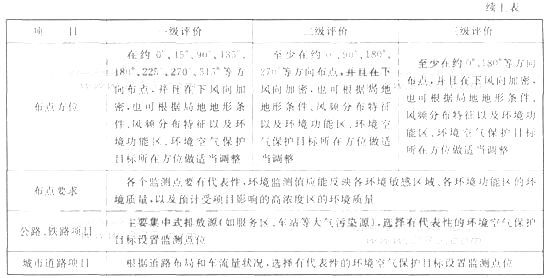 续上表
项 目
一级评价
二级评价
三级评价
布点方位
在约0°、45°、90°、135°、
180°、225°、270°、315°等方
向布点,并且在下风向加
密,也可根据局地地形条
件、风频分布特征以及环
境功能区、环境空气保护
目标所在方位做适当调整
至少在约0°、90°、180°、
270°等方向布点,并且在下
风向加密,也可根据局地
地形条件、风频分布特征
以及环境功能区、环境空
气保护目标所在方位做适
当调整
至少在约0°、180°等方向
布点,并且在下风向加密,
也可根据局地地形条件、
风频分布特征以及环境功
能区、环境空气保护目标
所在方位做适当调整
布点要求
各个监测点要有代表性,环境监测值应能反映各环境敏感区域、各环境功能区的环
境质量,以及预计受项目影响的高浓度区的环境质量
公路、铁路项目
主要集中式排放源(如服务区、车站等大气污染源),选择有代表性的环境空气保护
目标设置监测点位
城市道路项目
根据道路布局和车流量状况,选择有代表性的环境空气保护目标设置监测点位